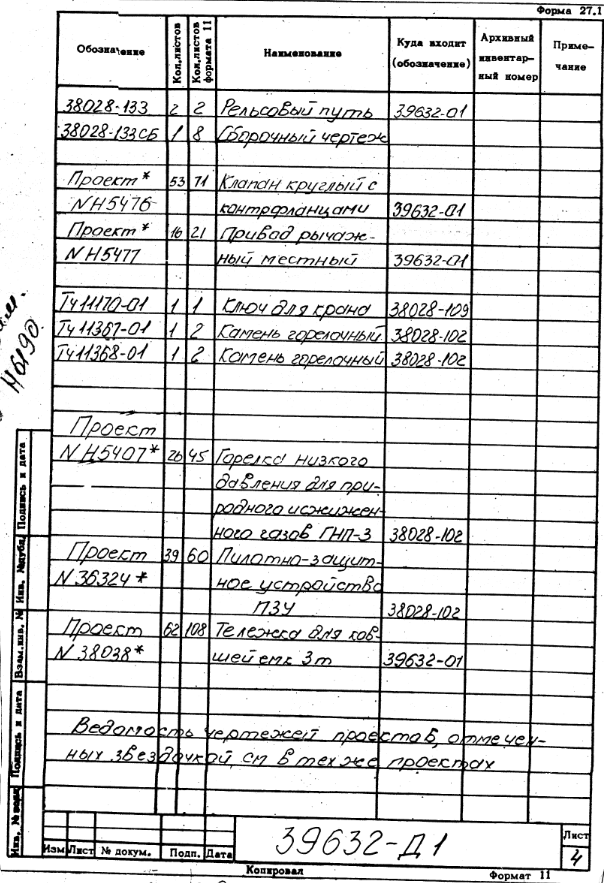 Форма 27.1
Обозначение Кол.листов Кол.листов формата 11 Наименование Куда входит (обозначение) Архивный инвентарный номер Примечание
38028-133 2 2 Рельсовый путь 39632-01
38028-133СБ 1 8 Сборочный чертеж
Проект* 53 71 Клапан круглый с
NН5476 контрфланцами 39632-01
Проект* 16 21 Привод рычаж-
NН5477 ный местный 39632-01
Тч11170-01 1 1 Ключ для крана 38028-109
Тч11367-01 1 2 Камень горелочный 38028-102
Тч11368-01 1 2 Камень горелочный 38028-102
Проект
NН5407* 26 45 Горелка низкого
давления для при-
родного и сжижен-
ного газов ГНП-3 38028-102
Проект 39 60 Пилотно-защит-
N36324* ное устройство
ПЗУ 38028-102
Проект 62 108 Тележка для ков-
N38038* шей емк 3т 39632-01
Ведомость чертежей проектов, отмечен-
ных звездочкой см в тех же проектах
Н6190
Инв. № подл Подпись и дата Взам.инв. № Инв. №дубл. Подпись и дата
39632-Д1
Изм Лист № докум. Подп. Дата
Лист
4
Копировал Формат 11